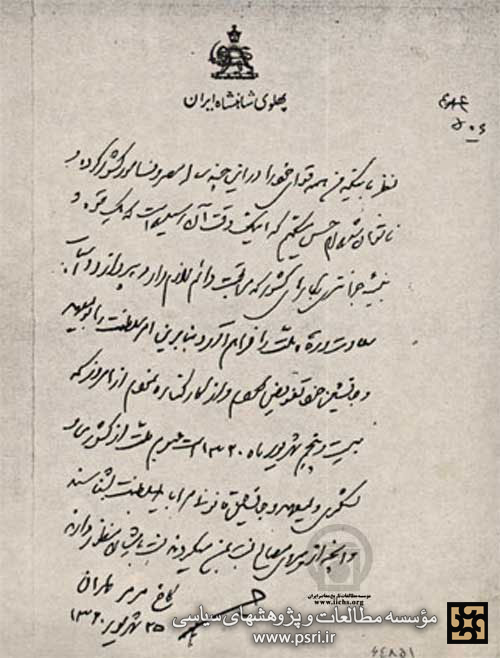 پهلوی شاهنشاه ایران
نظر باینکه من همه قوای خود را در این چند ساله مصروف امور کشور کرده و
ناتوان شده‌ام حس میکنم که اینک وقت آن رسیده است که یک قوه و
بنیه جوانتری بکارهای کشور که مراقبت دائم لازم دارد بپردازد و اسباب
سعادت و رفاه ملت را فراهم آورد بنابراین امر سلطنت را بولیعهد
و جانشین خود تفویض کردم و از کار کناره نمودم از امروز که
بیست و پنجم شهریور ماه ۱۳۲۰ است عموم ملت از کشوری و
لشکری ولیعهد و جانشین قانونی مرا باید بسلطنت بشناسند
و آنچه از پیروی مصالح نسبت بمن میکردند نسبت بایشان منظور دارند
کاخ مرمر تهران
۲۵ شهریور ۱۳۲۰
موسسه مطالعات تاریخ معاصر ایران
www.iichs.org
مؤسسه مطالعات و پژوهشهای سیاسی
www.psri.ir